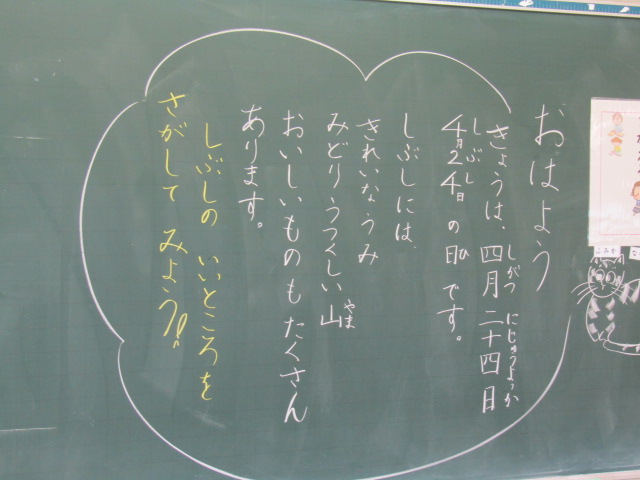 おはよう
きょうは、四月二十四日
しがつ にじゅうよっか
しぶし
4月24日の日です。
ひ
しぶしには、
きれいなうみ
みどりうつくしい山
やま
おいしいものもたくさん
あります。
しぶしの いいところを
さがして みよう!!